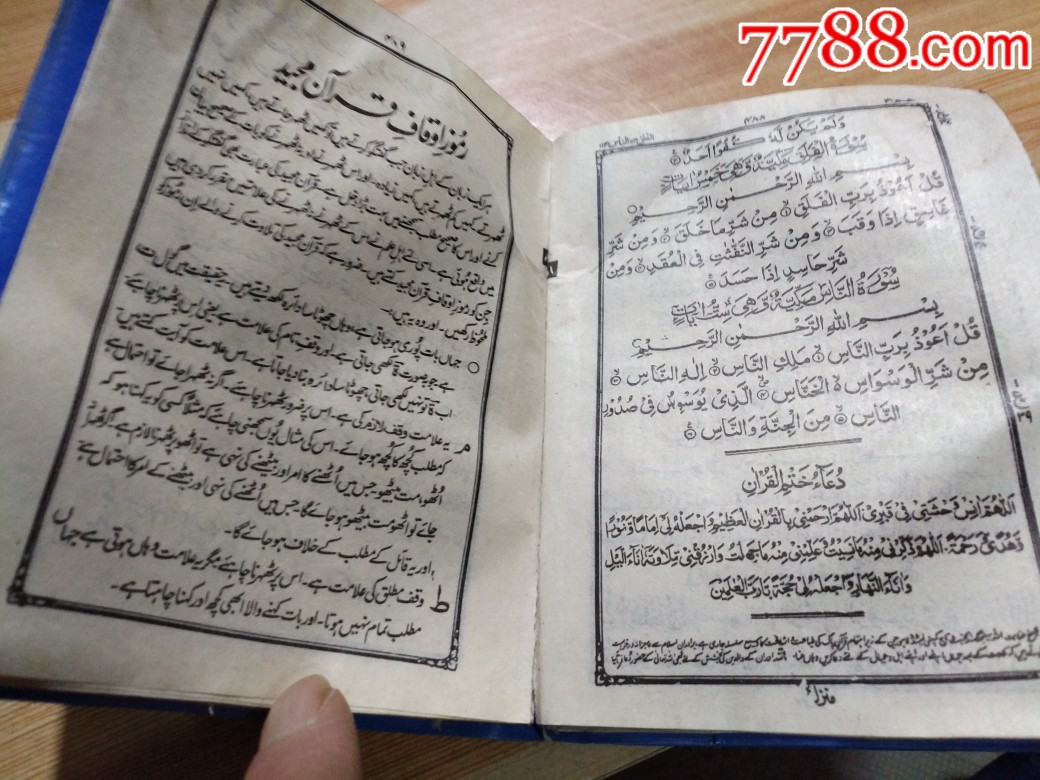 7788.com
۴۸۸
وَلَمْ يَكُنْ لَّهٗ كُفُوًا اَحَدٌ
سُوْرَةُ الْفَلَقِ مَكِّيَّةٌ وَّهِيَ خَمْسُ اٰيَاتٍ
بِسْمِ اللهِ الرَّحْمٰنِ الرَّحِيْمِ
قُلْ اَعُوْذُ بِرَبِّ الْفَلَقِ مِنْ شَرِّ مَا خَلَقَ وَمِنْ شَرِّ
غَاسِقٍ اِذَا وَقَبَ وَمِنْ شَرِّ النَّفّٰثٰتِ فِي الْعُقَدِ وَمِنْ
شَرِّ حَاسِدٍ اِذَا حَسَدَ
سُوْرَةُ النَّاسِ مَكِّيَّةٌ وَّهِيَ سِتُّ اٰيَاتٍ
بِسْمِ اللهِ الرَّحْمٰنِ الرَّحِيْمِ
قُلْ اَعُوْذُ بِرَبِّ النَّاسِ مَلِكِ النَّاسِ اِلٰهِ النَّاسِ
مِنْ شَرِّ الْوَسْوَاسِ الْخَنَّاسِ الَّذِيْ يُوَسْوِسُ فِيْ صُدُوْرِ
النَّاسِ مِنَ الْجِنَّةِ وَالنَّاسِ
دُعَاءُ خَتْمِ الْقُرْاٰنِ
اَللّٰهُمَّ اٰنِسْ وَحْشَتِيْ فِيْ قَبْرِيْ اَللّٰهُمَّ ارْحَمْنِيْ بِالْقُرْاٰنِ الْعَظِيْمِ وَاجْعَلْهُ لِيْ اِمَامًا وَّنُوْرًا
وَّهُدًى وَّرَحْمَةً اَللّٰهُمَّ ذَكِّرْنِيْ مِنْهُ مَا نَسِيْتُ وَعَلِّمْنِيْ مِنْهُ مَا جَهِلْتُ وَارْزُقْنِيْ تِلَاوَتَهٗ اٰنَاءَ الَّيْلِ
وَاٰنَاءَ النَّهَارِ وَاجْعَلْهُ لِيْ حُجَّةً يَّا رَبَّ الْعٰلَمِيْنَ
منزل
۴۸۹
رموز اوقاف قرآن مجید
ہر ایک زبان کے اہل زبان جب گفتگو کرتے ہیں تو کہیں ٹھہر جاتے ہیں کہیں نہیں
ٹھہرتے۔ کہیں کم ٹھہرتے ہیں کہیں زیادہ۔ اور اس ٹھہرنے اور نہ ٹھہرنے کو بات کے صحیح بیان
کرنے اور اس کا صحیح مطلب سمجھنے میں بہت بڑا دخل ہے۔ قرآن مجید کی عبارت بھی گفتگو کے انداز
میں واقع ہوئی ہے۔ اسی لئے اہل علم نے اس کے ٹھہرنے نہ ٹھہرنے کی علامتیں مقرر کر دی ہیں
جن کو رموز اوقاف قرآن مجید کہتے ہیں۔ ضرور ہے کہ قرآن مجید کی تلاوت کرنے والے ان رموز کو
ملحوظ رکھیں۔ اور وہ یہ ہیں:۔
○ جہاں بات پوری ہو جاتی ہے وہاں چھوٹا سا دائرہ لکھ دیتے ہیں یہ حقیقت میں گول ت
ہے جو بصورت ۃ لکھی جاتی ہے۔ اور یہ وقف تام کی علامت ہے یعنی اس پر ٹھہرنا چاہئے
اب ۃ تو نہیں لکھی جاتی چھوٹا سا دائرہ بنا دیا جاتا ہے۔ اس علامت کو آیت کہتے ہیں
م یہ علامت وقف لازم کی ہے۔ اس پر ضرور ٹھہرنا چاہئے۔ اگر نہ ٹھہرا جائے تو احتمال ہے
کہ مطلب کچھ کا کچھ ہو جائے۔ اس کی مثال یوں سمجھنی چاہئے کہ مثلاً کسی کو یہ کہنا ہو کہ
اٹھو، مت بیٹھو۔ جس میں اٹھنے کا امر اور بیٹھنے کی نہی ہے تو اٹھو پر ٹھہرنا لازم ہے۔ اگر ٹھہرا نہ
جائے تو اٹھو مت بیٹھو ہو جائے گا۔ جس میں اٹھنے کی نہی اور بیٹھنے کے امر کا احتمال ہے
اور یہ قائل کے مطلب کے خلاف ہو جائے گا۔
ط وقف مطلق کی علامت ہے۔ اس پر ٹھہرنا چاہئے مگر یہ علامت وہاں ہوتی ہے جہاں
مطلب تمام نہیں ہوتا۔ اور بات کہنے والا ابھی کچھ اور کہنا چاہتا ہے۔